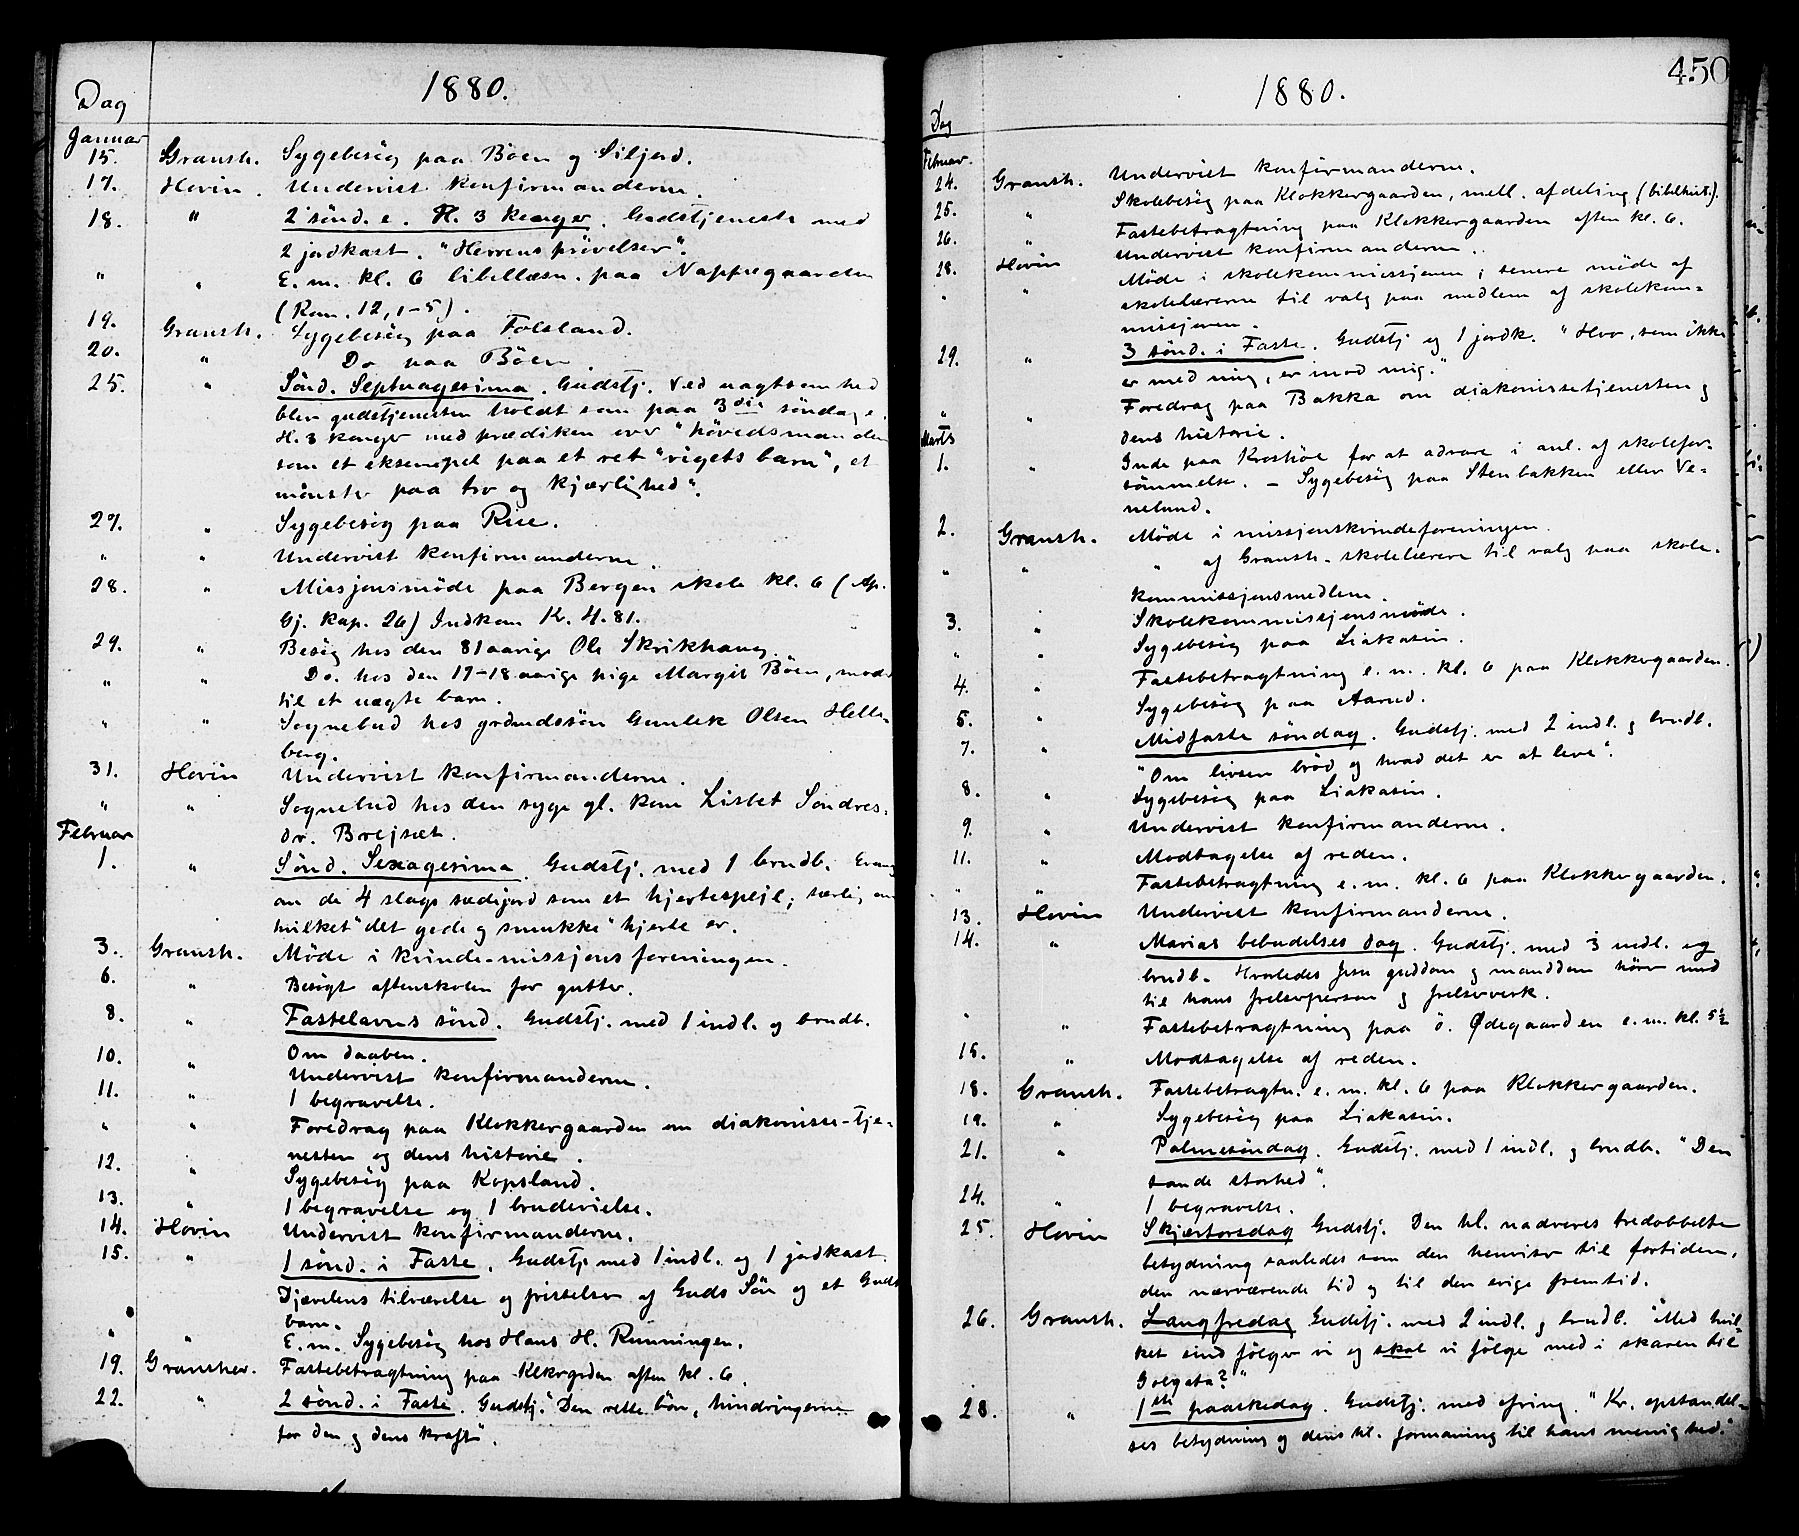 1880.
Dag
Januar
15. Gransh. Sygebesøg paa Böen og Siljord.
17. Hovin. Undervist konfirmanderne.
18. " 2' sønd. e. H. 3 konger. Gudstjeneste med
2 jordkast. "Herrens prövelser".
" " E. m. kl. 6 bibellæsn. paa Nappegaarden
(Rom. 12, 1-5).
19. Gransh. Sygebesøg paa Folsland.
20. " Do paa Böen
25. " Sönd. Septuagesima. Gudstj. Ved uagtsomhed
blev gudstjenesten holdt som paa 3die söndag e.
H. 3 konger med prædiken over "hövedsmanden
som et eksempel paa et ret "rigets barn", et
mönster paa tro og kjærlighed".
27. " Sygebesøg paa Rue.
" " Undervist konfirmanderne.
28. " Missjonsmöde paa Bergen skole kl. 6 (Ap.
Gj. kap. 26) Indkom Kr. 4.81.
29. " Besög hos den 81 aarige Ole Skrikhaug.
" " Do. hos den 17-18 aarige pige Margit Böen, moder
til et uægte barn.
" " Sognebud hos grdmdssön Gunlek Olsen Helle-
berg.
31. Hovin Undervist konfirmanderne.
" " Sognebud hos den syge gl. kone Lisbet Søndres-
dr. Brejsæt.
Februar
1. " Sønd. Sexagesima. Gudstj. med 1 brudb. Evang
om de 4 slags sædejord som et hjertespejl; særlig om
hvilket "det gode og smukke" hjerte er.
3. Gransh. Møde i kvinde-missjonsforeningen.
6. " Besøgt aftenskolen for gutter.
8. " Fastelavns sønd. Gudstj. med 1 indl. og brudb.
Om daaben.
10. " Undervist konfirmanderne.
11. " 1 begravelse.
" " Foredrag paa Klokkergaarden om diakonisse-tje-
nesten og dens historie.
12. " Sygebesøg paa Kopsland.
13. " 1 begravelse og 1 brudevielse.
14. Hovin Undervist konfirmanderne.
15. " 1 sønd. i Faste. Gudstj med 1 indl. og 1 jordkast.
Djævelens tilværelse og fristelser af Guds Sön og et Guds
barn.
" " E. m. Sygebesøg hos Hans H. Runningen.
19. Gransher. Fastebetragtning paa Klkrgrden aften kl. 6.
22. " 2 sønd. i Faste. Gudstj. "Den rette bön, hindringerne
for den og dens kraft".
450
1880.
Dag
Februar.
24. Gransh. Undervist konfirmanderne.
25. " Skolebesøg paa Klokkergaarden, mell. afdeling (bibelhist.).
26. " Fastebetragtning paa Klokkergaarden aften kl. 6.
28. Hovin Undervist konfirmanderne.
" " Møde i skolekommissjonen; senere møde af
skolelærerne til valg paa medlem af skolekom-
missjonen.
29. " 3 sønd. i Faste. Gudstj og 1 jordk. "Hvo, som ikke
er med mig, er mod mig."
" " Foredrag paa Bakka om diakonissetjenesten og
dens historie.
Marts
1. " Inde paa Kroshöe for at advare i anl. af skolefor-
sömmelse. - Sygebesøg paa Stenbakken eller Ve-
nelund.
2. Gransh. Møde i missjonskvindeforeningen.
" " " af Gransh. skolelærere til valg paa skole-
kommissjonsmedlem.
3. " Skolekommissjonsmöde.
" " Sygebesøg paa Liakasin.
4. " Fastebetragtning e. m. kl. 6 paa Klokkergaarden.
5. " Sygebesøg paa Aarud.
7. " Midfaste søndag. Gudstj. med 2 indl. og brudb.
"Om livsens bröd og hvad det er at leve".
8. " Sygebesøg paa Liakasin.
9. " Undervist konfirmanderne.
11. " Modtagelse af reden.
" " Fastebetragtning e. m. kl. 6 paa Klokkergaarden.
13. Hovin Undervist konfirmanderne.
14. " Marias bebudelses dag. Gudstj. med 3 indl. og
brudb. Hvorledes Jesu guddom og manddom hörer med
til hans frelserperson og frelserverk.
" " Fastebetragtning paa ö. Ødegaarden e. m. kl. 5½
15. " Modtagelse af reden.
18. Gransh. Fastebetragtn. e. m. kl. 6 paa Klokkergaarden.
19. " Sygebesøg paa Liakasin.
21. " Palmesøndag. Gudstj. med 1 indl. og brudb. "Den
sande storhed".
24. " 1 begravelse.
25. Hovin Skjærtorsdag Gudstj. Den hl. nadveres tredobbelte
betydning saaledes som den henviser til fortiden,
den nærværende tid og til den evige fremtid.
26. Gransh. Langfredag Gudstj. med 2 indl. og brudb. "Med hvil-
ket sind følger vi og skal vi fölge med i skaren til
Golgata?"
28. " 1ste paaskedag. Gudstj. med ofring. "Kr. opstandel-
ses betydning og dens hl. formaning til hans menighed."